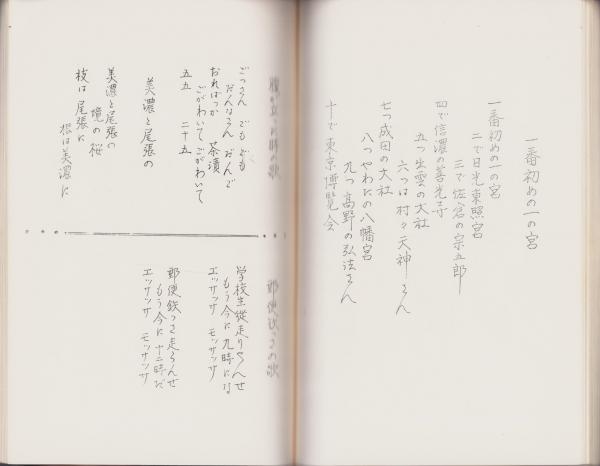 一番初めの一の宮
一番初めの一の宮
二で日光東照宮
三で佐倉の宗五郎
四で信濃の善光寺
五つ出雲の大社
六つは村々天神さん
七つ成田の大社
八つやわたの八幡宮
九つ高野の弘法さん
十で東京博覧会
腹が立った時の歌
ごっさん でも ども
だんなさん おんど
おればっか 茶漬
ごがわいて ごがわいて
五五 二十五
美濃と尾張の
美濃と尾張の
境の桜
枝は尾張に
根は美濃に
郵便鉄っさの歌
学校生徒走りゃんせ
もう今に九時になる
エッサッサ モッサッサ
郵便鉄っさ走らんせ
もう今に十二時だ
エッサッサ モッサッサ